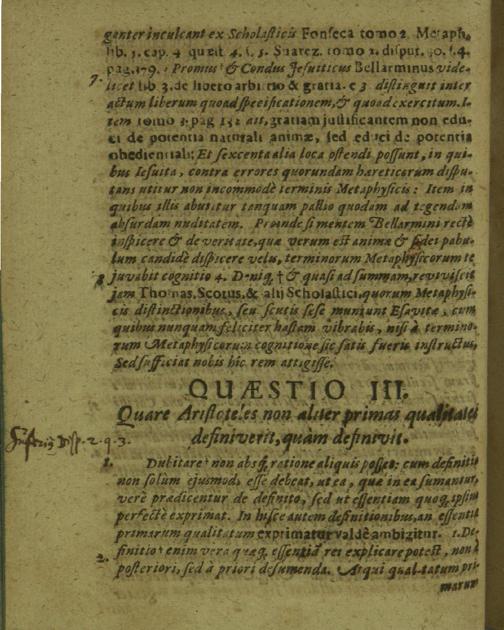 ganter inculcant ex Scholasticis Fonseca tomo 2. Metaph.
lib. 5. cap. 4 quæst 4. s. 5. Suarez. tomo 2. disput. 40. s. 4.
pag. 179. Promus & Condus Jesuiticus Bellarminus vide-
7.
licet lib 3. de libero arbitrio & gratia. c 3 distinguit inter
actum liberum quoad specificationem, & quoad exercitum. I-
tem tomo 3. pag 152 ait, gratiam justificantem non edu-
ci de potentia naturali animæ, sed educi de potentia
obedientiali: Et sexcenta alia loca ostendi possunt, in qui-
bus Iesuita, contra errores quorundam hæreticorum dispu-
tans utitur non incommodè terminis Metaphysicis: Item in
quibus illis abutitur tanquam pallio quodam ad tegendam
absurdam nuditatem. Proinde si mentem Bellarmini rectè
inspicere & de veritate, quæ verum est animæ & fidei pabu-
lum candidè dispicere velis, terminorum Metaphysicorum te
juvabit cognitio 4. Deniq, † & quasi ad summam, reviviscit
8
jam Thomas, Scotus, & alij Scholastici, quorum Metaphysi-
cis distinctionibus, seu scutis sese muniunt Esavitæ, cum
quibus nunquam feliciter hastam vibrabis, nisi à termino-
rum Metaphysicorum cognitione sic satis fueris instructus.
Sed sufficiat nobis hic rem attigisse.
QUÆSTIO III.
Quare Aristoteles non aliter primas qualitates
definiverit, quàm definivit.
Disp. 2. q. 3.
1.
Dubitare non absq, ratione aliquis posset: cum definitio
non solùm ejusmodi esse debeat, ut ea, quæ in ea sumantur,
verè prædicentur de definito, sed ut essentiam quoq, ipsius
perfectè exprimat. In hisce autem definitionibus, an essentia
primarum qualitatum exprimatur valdè ambigitur. 1. De-
finitio enim vera quæq, essentiā rei explicare potest, non à
2.
posteriori, sed à priori desumenda. Atqui qualitatum pri-
marum